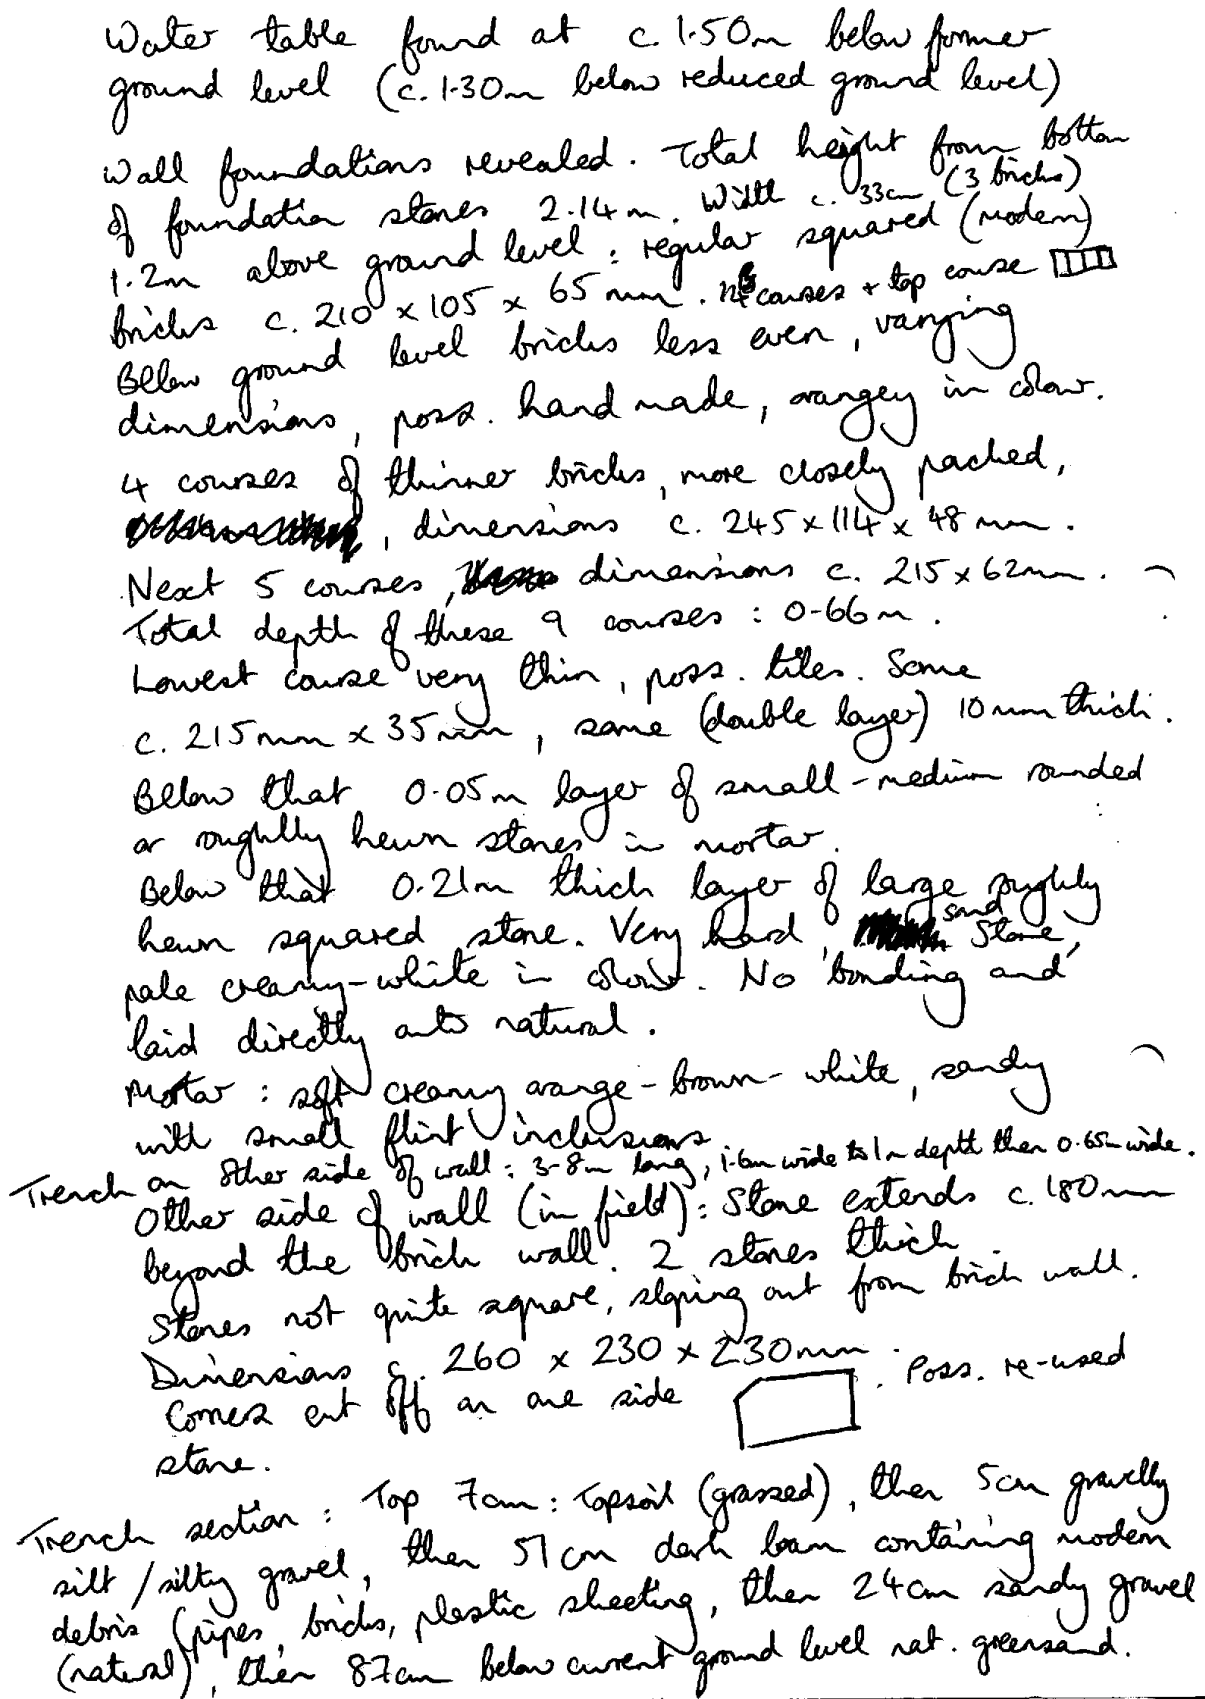 Water table found at c. 1.50m below former
ground level (c. 1.30m below reduced ground level)
Wall foundations revealed. Total height from bottom
of foundation stones 2.14m. Width c. 33cm (3 bricks)
1.2m above ground level : regular squared (modern)
bricks c. 210 x 105 x 65mm. courses + top course
Below ground level bricks less even, varying
dimensions, poss. hand made, orangey in colour.
4 courses of thinner bricks, more closely packed,
, dimensions c. 245 x 114 x 48mm.
Next 5 courses, dimensions c. 215 x 62mm.
Total depth of these 9 courses : 0.66m.
Lowest course very thin, poss. tiles. Some
c. 215mm x 35mm, some (double layer) 10mm thick.
Below that 0.05m layer of small-medium rounded
or roughlly hewn stones in mortar.
Below that 0.21m thick layer of large roughly
hewn squared stone. Very hard, sand stone,
pale creamy-white in colour. No bonding and
laid directly onto natural.
Mortar : soft creamy orange-brown-white, sandy
with small flint inclusions
Trench on other side of wall : 3.8m long, 1.6m wide to 1m depth then 0.65m wide.
Other side of wall (in field) : Stone extends c. 180mm
beyond the brick wall. 2 stones thick.
Stones not quite square, sloping out from brick wall.
Dimensions c. 260 x 230 x 230mm.
Corners cut off on one side . Poss. re-used
stone.
Trench section : Top 7cm : Topsoil (grassed), then 5cm gravelly
silt / silty gravel, then 51cm dark loam containing modern
debris (pipes, bricks, plastic sheeting, then 24cm sandy gravel
(natural), then 87cm below current ground level nat. greensand.